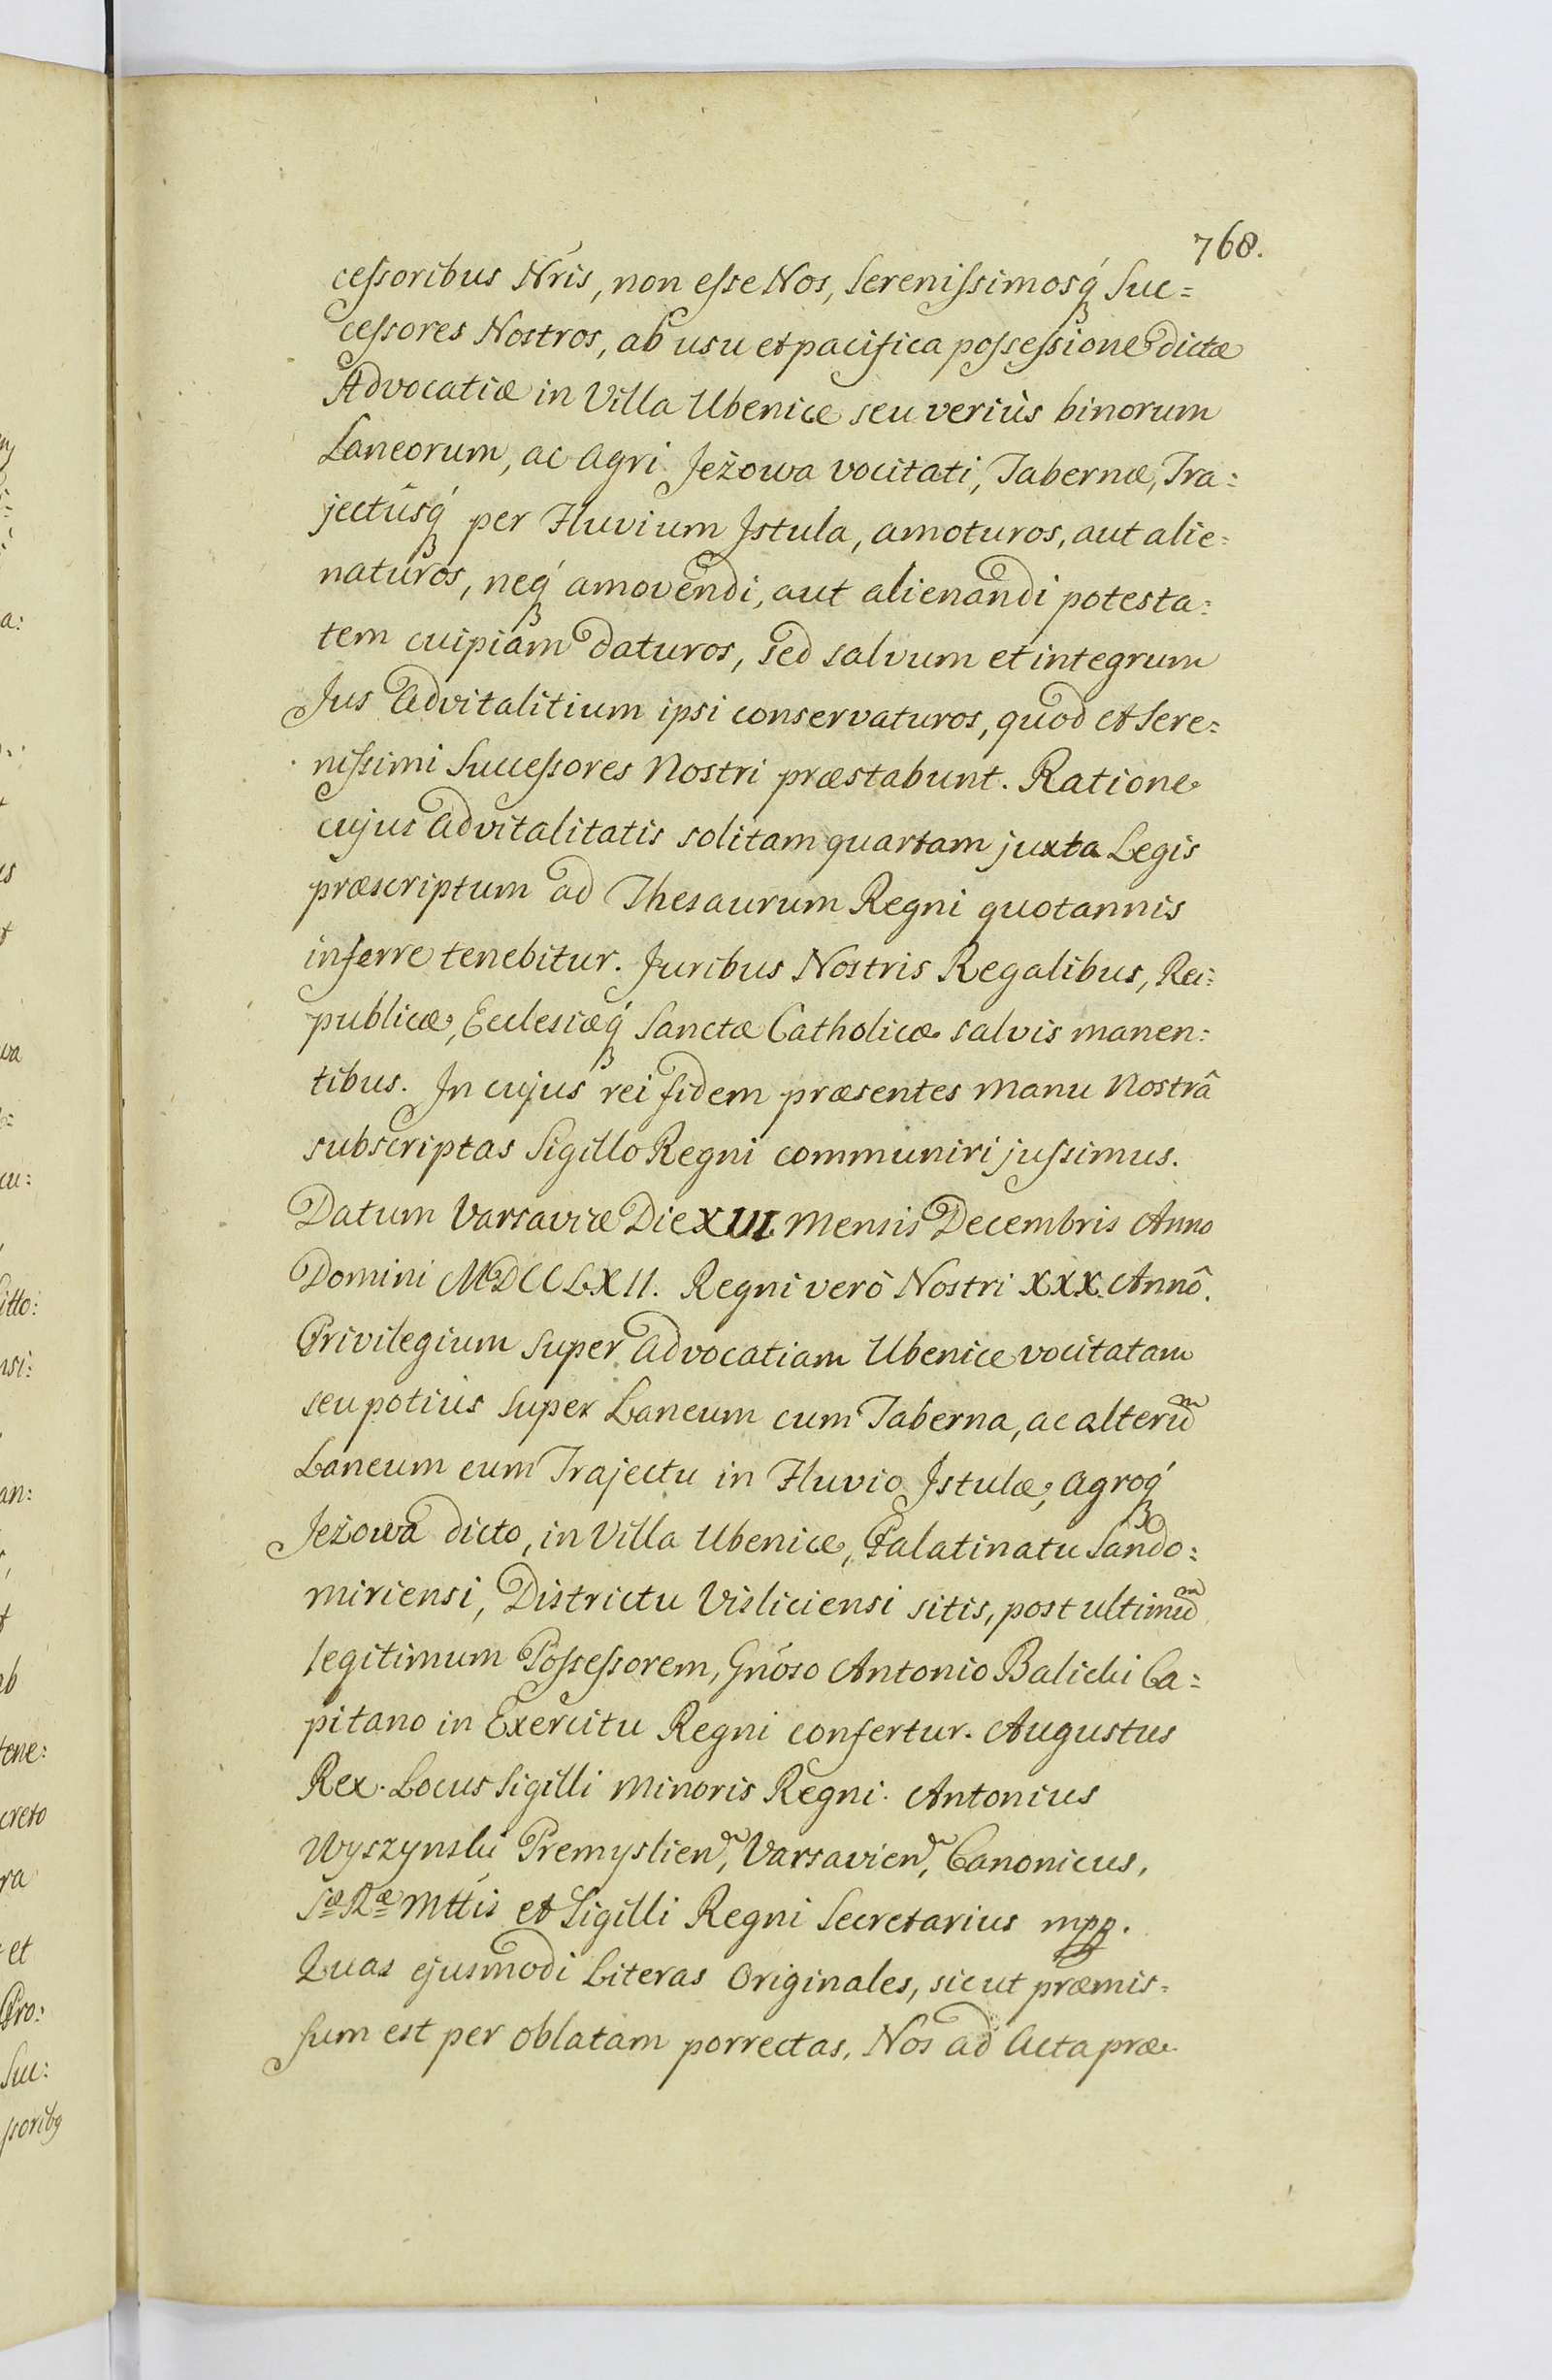 768.
cessoribus Nr̃is, non esse Nos, Serenissimosq́ Suc=
cessores Nostros, ab usu et pacifica possessione dictæ
Advocatiæ in Villa Ubenice seu veriùs binorum
Laneorum, ac Agri Jeżowa vocitati, Tabernæ, Tra=
jectûsq́ per Fluvium Istula, amoturos, aut alie=
naturos, neq́ amovendi, aut alienandi potesta=
tem cuipiam daturos, sed salvum et integrum
Jus Advitalitium ipsi conservaturos, quod et Sere=
nissimi Successores Nostri præstabunt. Ratione
cujus Advitalitatis solitam quartam juxta Legis
præscriptum ad Thesaurum Regni quotannis
inferre tenebitur. Juribus Nostris Regalibus, Rei=
publicæ, Ecclesiæq́ Sanctæ Catholicæ salvis manen=
tibus. In cujus rei fidem præsentes manu Nostrâ
subscriptas Sigillo Regni communiri jussimus.
Datum Varsaviæ Die XVI Mensis Decembris Anno
Domini MDCCLXII. Regni verò Nostri XXX. Annô.
Privilegium super Advocatiam Ubenice vocitatam
seu potiùs super Laneum cum Taberna, ac alterũ
Laneum cum Trajectu in Fluvio Istulæ, Agroq́
Jeżowa dicto, in Villa Ubenice, Palatinatu Sando=
miriensi, Districtu Visliciensi sitis, post ultimũ
legitimum Possessorem, Gnõso Antonio Balicki Ca=
pitano in Exercitu Regni confertur. Augustus
Rex. Locus Sigilli Minoris Regni. Antonius
Wyszynski Premyslien, Varsavien, Canonicus,
Sæ Ræ Mttis et Sigilli Regni Secretarius mpp.
Quas ejusmodi Literas Originales, sicut præmis=
sum est per oblatam porrectas, Nos ad Acta præ